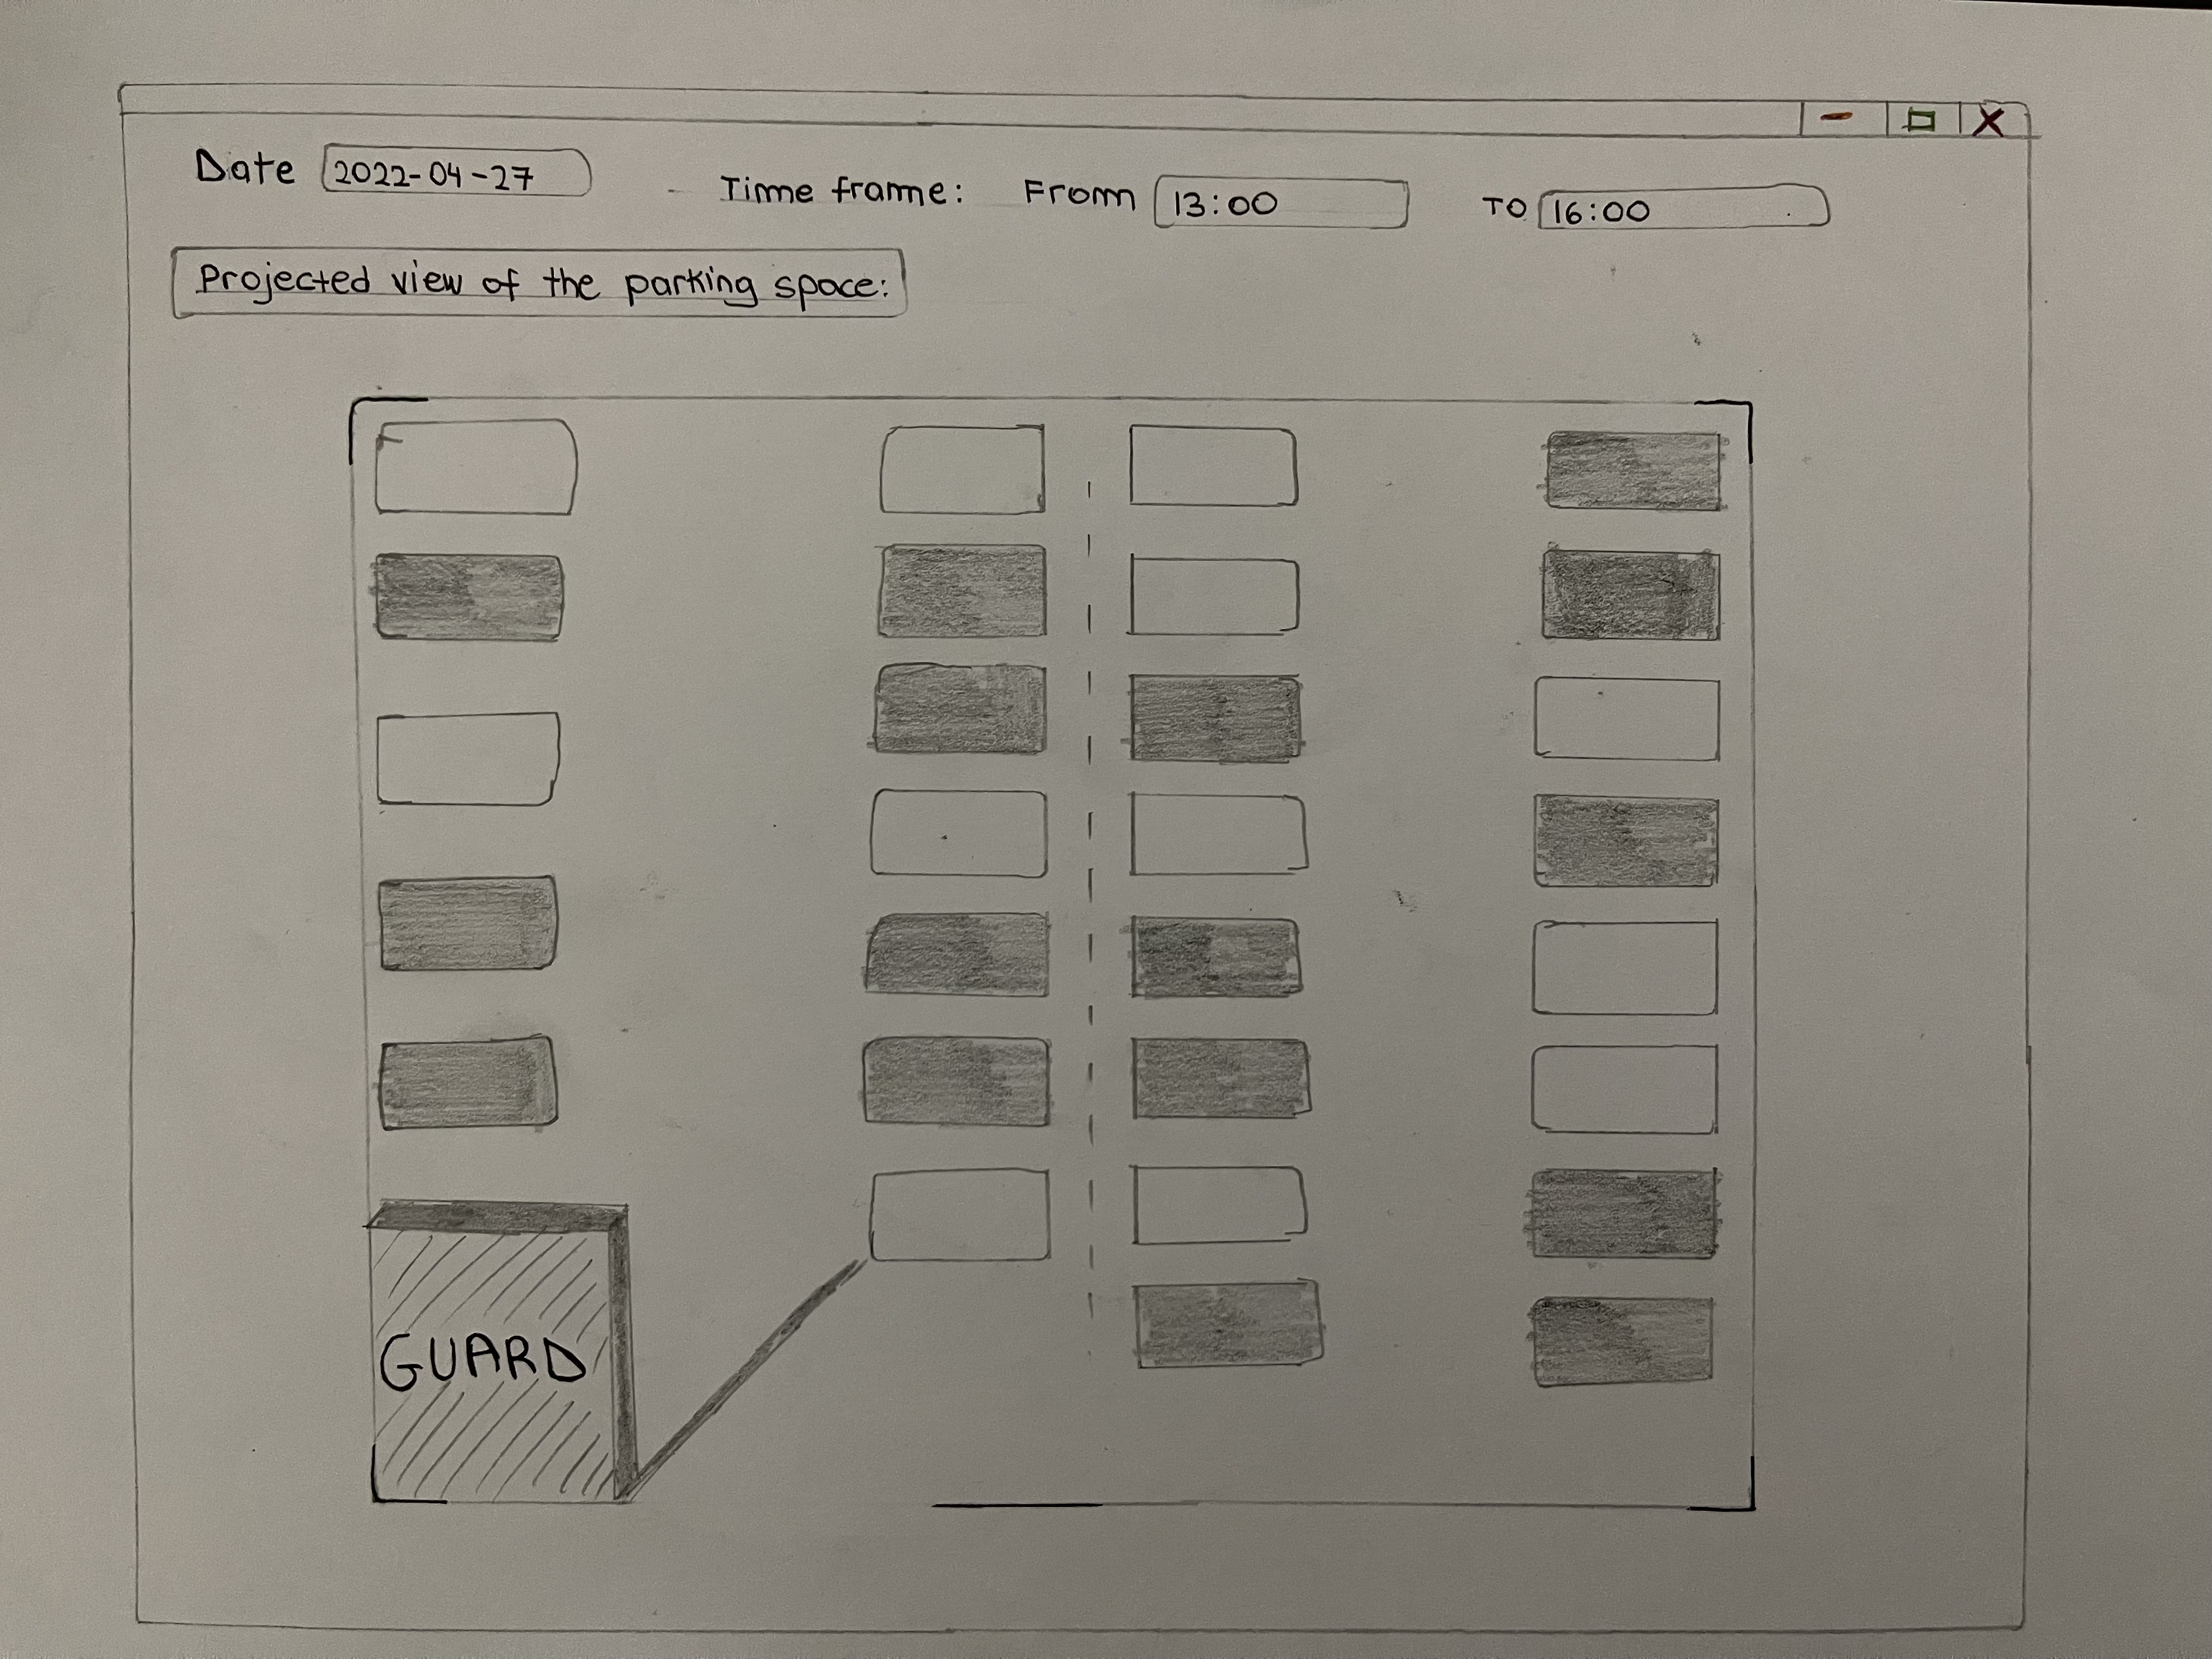 Date 2022-04-27 Time frame: From 13:00 TO 16:00
Projected view of the parking space:
GUARD